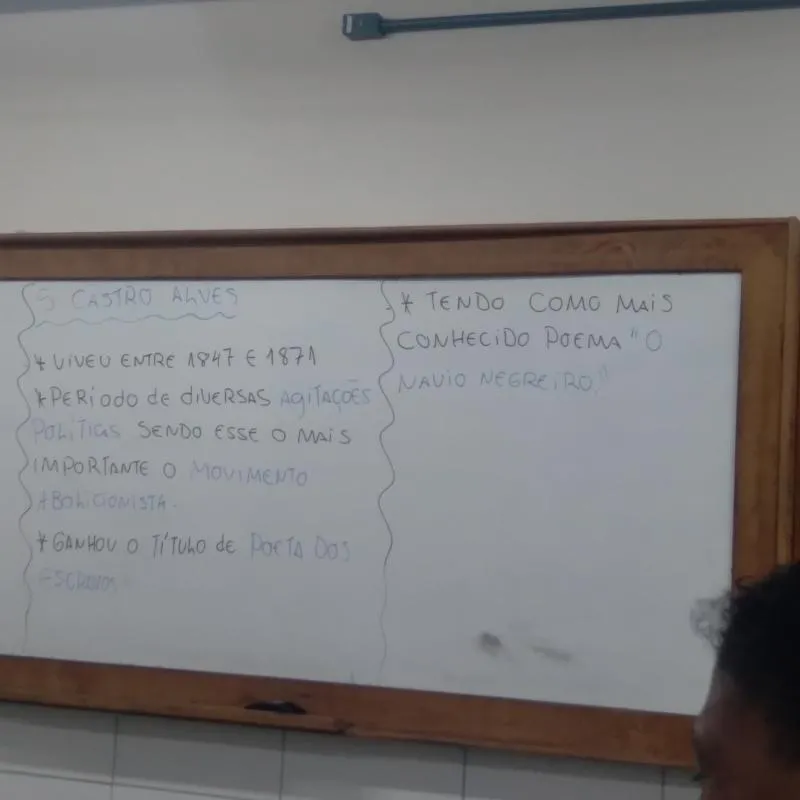 5 CASTRO ALVES
* VIVEU ENTRE 1847 E 1871
* PERíodo de diVERSAS AGITAÇÕES
POLÍTICAS SENDO ESSE O MAIS
IMPORTANTE O MOVIMENTO
ABOLICIONISTA.
* GANHOU O TÍTULO de POETA DOS
ESCRAVOS
* TENDO COMO MAIS
CONHECIDO POEMA "O
NAVIO NEGREIRO."